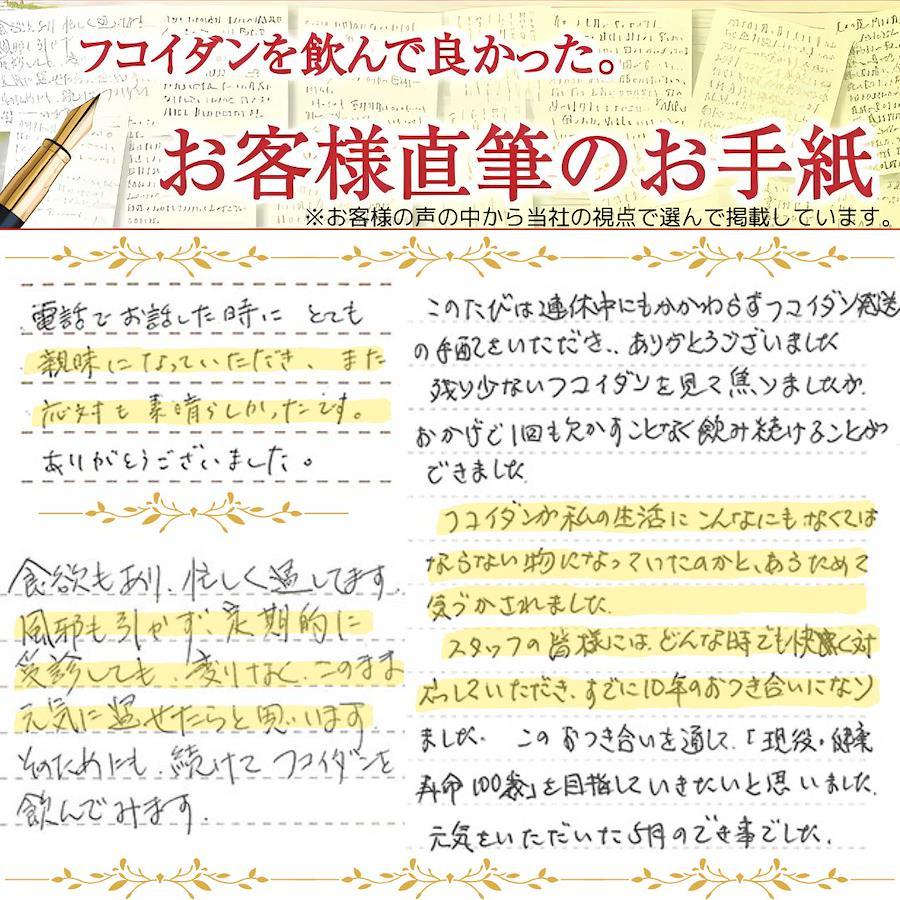 フコイダンを飲んで良かった。
お客様直筆のお手紙
※お客様の声の中から当社の視点で選んで掲載しています。
電話でお話した時に とても
親味になっていただき、また
応対も素晴らしかったです。
ありがとうございました。
食欲もあり、忙しく過してます。
風邪も引かず、定期的に
受診しても、変りなく、このまま
元気に過せたらと思います
そのためにも、続けてフコイダンを
飲んでみます。
このたびは連休中にもかかわらずフコイダン発送
の手配をいただき、ありがとうございました
残り少ないフコイダンを見て焦りましたが、
おかげで1回も欠かすことなく飲み続けることが
できました
フコイダンが私の生活にこんなにもなくては
ならない物になっていたのかと、あらためて
気づかされました。
スタッフの皆様には、どんな時でも快く対
応していただき、すでに10年のおつき合いになり
ました。このおつき合いを通して、「現役・健康
寿命100歳」を目指していきたいと思いました。
元気をいただいた5月のでき事でした。